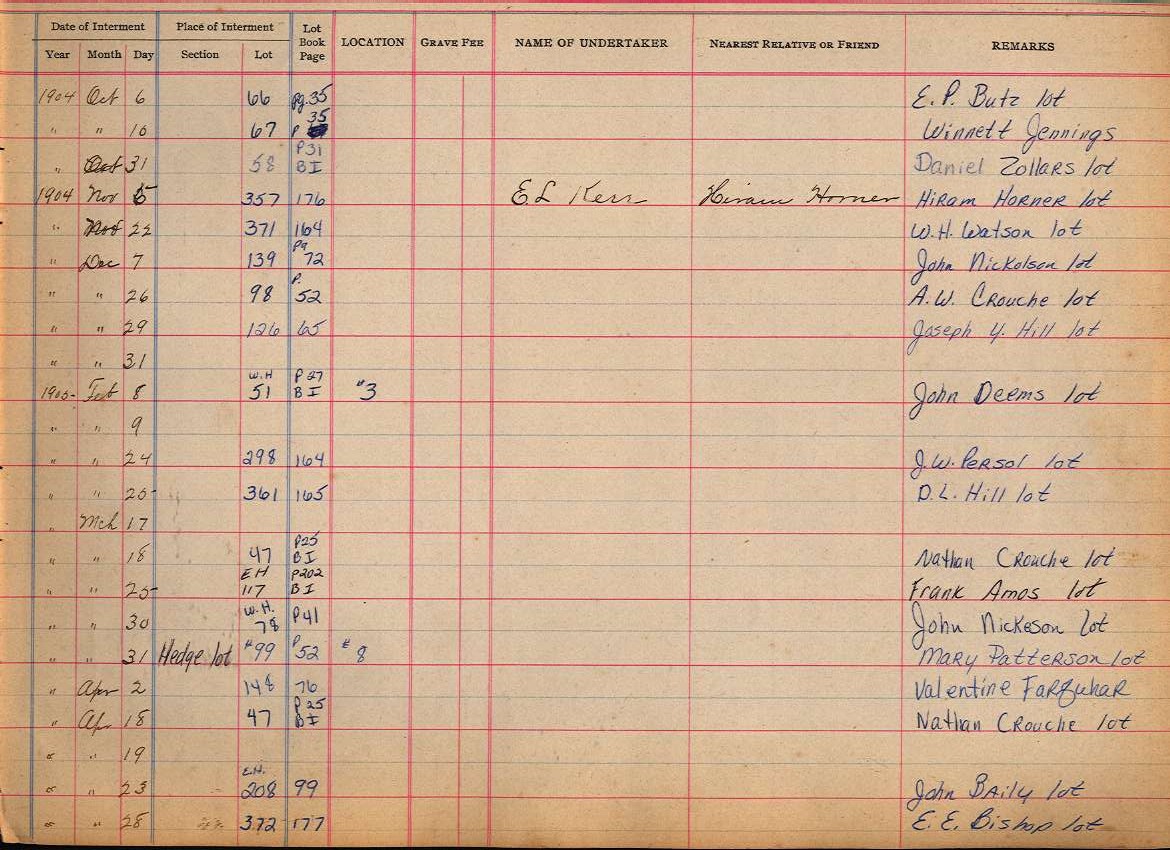 Date of Interment Place of Interment Lot Book Page LOCATION GRAVE FEE NAME OF UNDERTAKER NEAREST RELATIVE OR FRIEND REMARKS
Year Month Day Section Lot
1904 Oct 6 66 pg. 35 E. P. Butz lot
" " 16 67 P 35 Winnett Jennings
" Oct 31 58 P31 BI Daniel Zollars lot
1904 Nov 5 357 176 E L Kerr Hiram Horner Hiram Horner lot
" Nov 22 371 164 W.H. Watson lot
" Dec 7 139 Pg 72 John Nickolson lot
" " 26 98 P. 52 A.W. Crouche lot
" " 29 126 65 Joseph Y. Hill lot
" " 31
1905 Feb 8 W.H 51 P27 BI #3 John Deems lot
" " 9
" " 24 298 164 J.W. Persol lot
" " 25 361 165 D.L. Hill lot
" Mch 17
" " 18 47 P25 BI Nathan Crouche lot
" " 25 EH 117 P202 BI Frank Amos lot
" " 30 W.H. 78 P41 John Nickeson lot
" " 31 Hedge lot #99 P 52 # 8 Mary Patterson lot
" Apr 2 148 76 Valentine Farquhar
" Ap 18 47 P25 BI Nathan Crouche lot
" " 19
" " 23 E.H. 208 99 John Baily lot
" " 28 372 177 E. E. Bishop lot